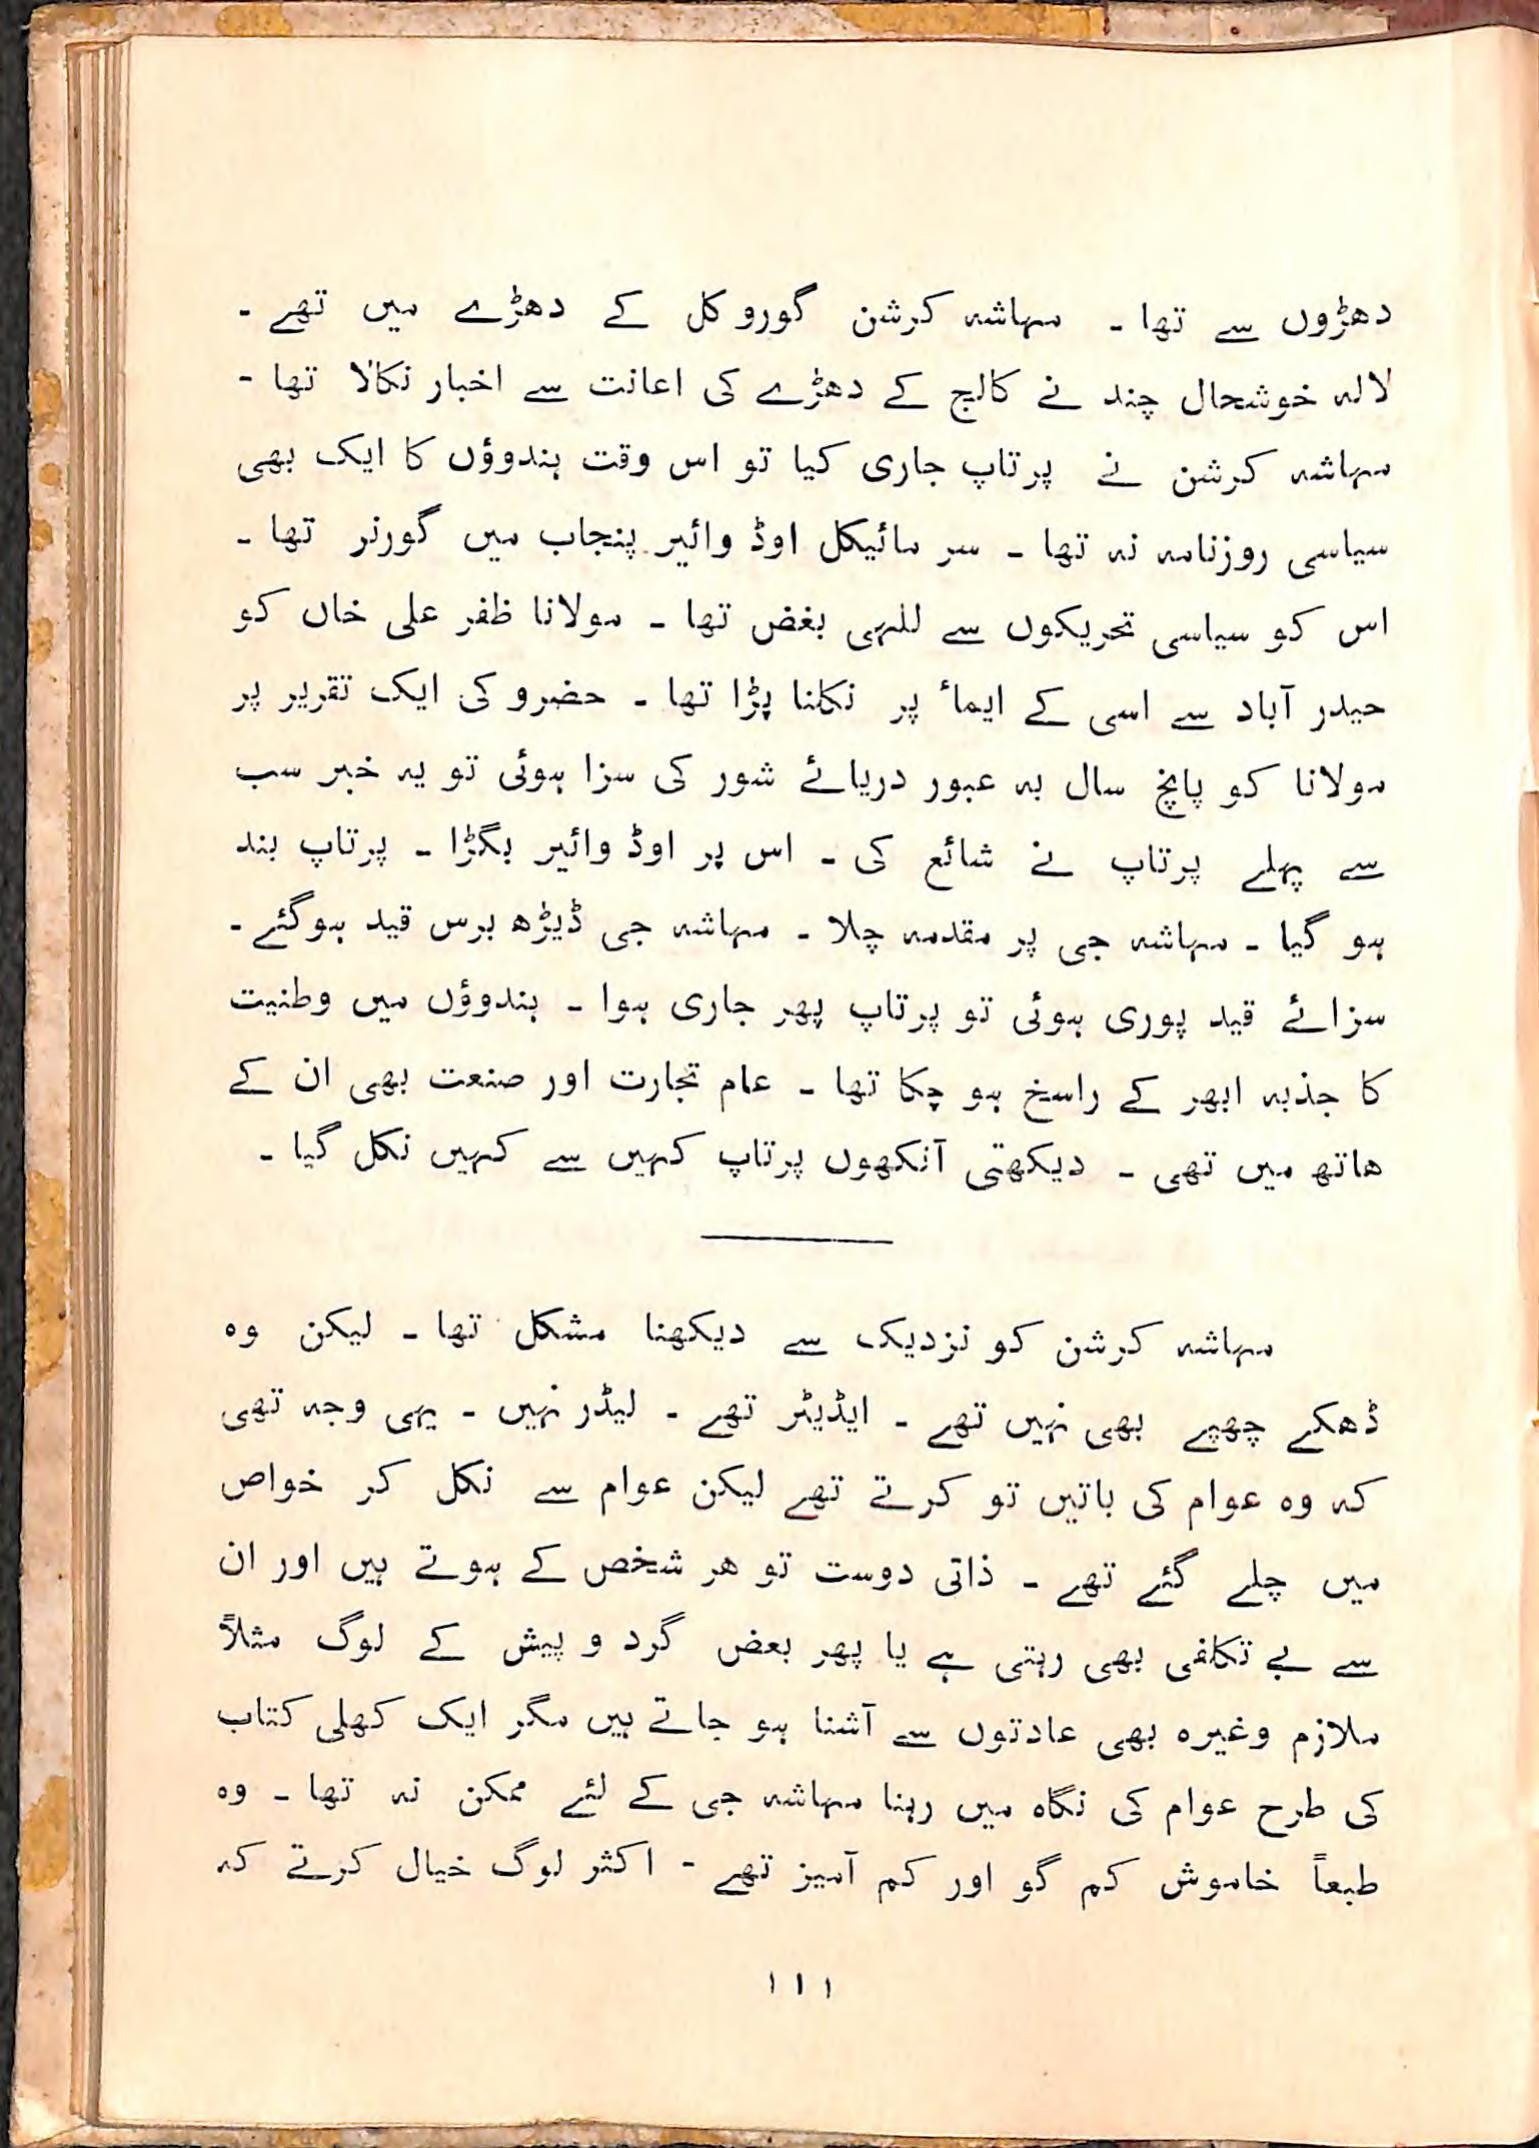 دھڑوں سے تھا ۔ مہاشہ کرشن گوروکل کے دھڑے میں تھے ۔
لالہ خوشحال چند نے کالج کے دھڑے کی اعانت سے اخبار نکالا تھا ۔
مہاشہ کرشن نے پرتاپ جاری کیا تو اس وقت ہندوؤں کا ایک بھی
سیاسی روزنامہ نہ تھا ۔ سر مائیکل اوڈ وائیر پنجاب میں گورنر تھا ۔
اس کو سیاسی تحریکوں سے للہی بغض تھا ۔ مولانا ظفر علی خاں کو
حیدر آباد سے اسی کے ایماٴ پر نکلنا پڑا تھا ۔ حضرو کی ایک تقریر پر
مولانا کو پانچ سال بہ عبور دریائے شور کی سزا ہوئی تو یہ خبر سب
سے پہلے پرتاپ نے شائع کی ۔ اس پر اوڈ وائیر بگڑا ۔ پرتاپ بند
ہو گیا ۔ مہاشہ جی پر مقدمہ چلا ۔ مہاشہ جی ڈیڑھ برس قید ہوگئے ۔
سزائے قید پوری ہوئی تو پرتاپ پھر جاری ہوا ۔ ہندوؤں میں وطنیت
کا جذبہ ابھر کے راسخ ہو چکا تھا ۔ عام تجارت اور صنعت بھی ان کے
ھاتھ میں تھی ۔ دیکھتی آنکھوں پرتاپ کہیں سے کہیں نکل گیا ۔
مہاشہ کرشن کو نزدیک سے دیکھنا مشکل تھا ۔ لیکن وہ
ڈھکے چھپے بھی نہیں تھے ۔ ایڈیٹر تھے ۔ لیڈر نہیں ۔ یہی وجہ تھی
کہ وہ عوام کی باتیں تو کرتے تھے لیکن عوام سے نکل کر خواص
میں چلے گئے تھے ۔ ذاتی دوست تو ھر شخص کے ہوتے ہیں اور ان
سے بے تکلفی بھی رہتی ہے یا پھر بعض گرد و پیش کے لوگ مثلاً
ملازم وغیرہ بھی عادتوں سے آشنا ہو جاتے ہیں مگر ایک کھلی کتاب
کی طرح عوام کی نگاہ میں رہنا مہاشہ جی کے لئے ممکن نہ تھا ۔ وہ
طبعاً خاموش کم گو اور کم آمیز تھے ۔ اکثر لوگ خیال کرتے کہ
۱۱۱